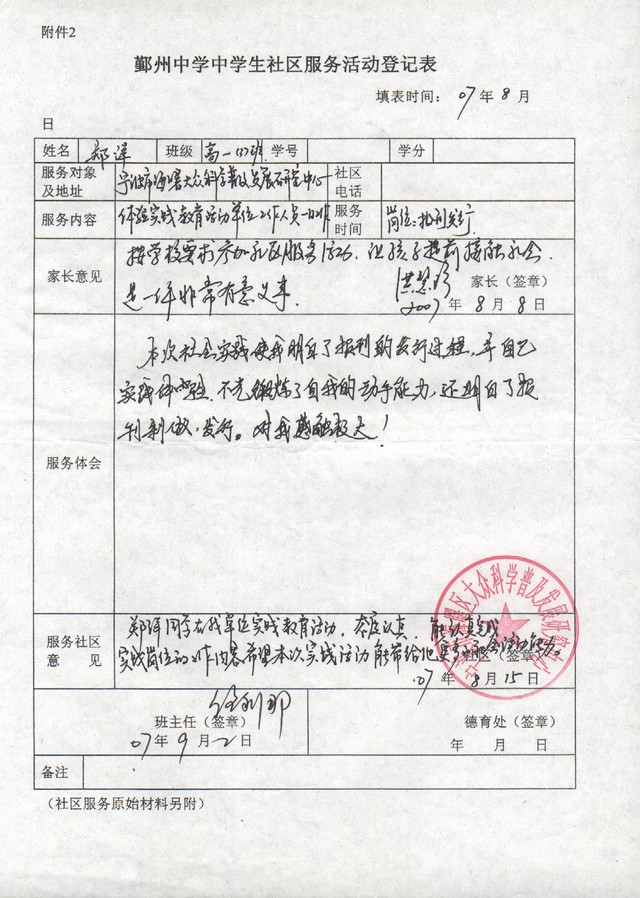 附件2
鄞州中学中学生社区服务活动登记表
填表时间：07年8月
日
姓名 郑洋 班级 高一(7)班 学号 学分
服务对象及地址 宁波市海曙大众科学普及发展研究中心 社区电话
服务内容 体验实践教育活动单位工作人员一日工作 服务时间 岗位：报刊发行
家长意见 按学校要求参加社区服务活动，让孩子提前接触社会
是一件非常有意义事。
家长（签章）
2007年8月8日
服务体会
本次社会实践使我明白了报刊的发行过程，并自己
实践体验，不光锻炼了自我的动手能力，还明白了报
刊制做，发行。对我感触极大！
服务社区意见
郑洋同学在我单位实践教育活动，态度认真，能认真完成
实践岗位的工作内容希望本次实践活动能带给他更多的社会活动能力。
社区（签章）
07年8月15日
海曙区大众科学普及发展研究中心
班主任（签章）
07年9月2日
德育处（签章）
年 月 日
备注
（社区服务原始材料另附）